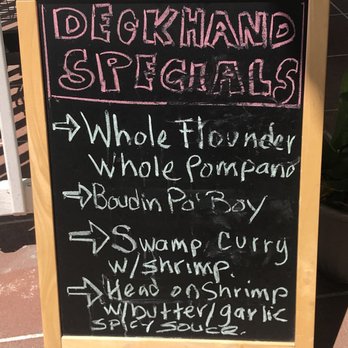 DECKHAND
SPECIALS
→Whole Flounder
Whole Pompano
→Boudin Po'Boy
→Swamp Curry
w/shrimp.
→Head on Shrimp
w/butter/garlic
SPICY SOUCE.